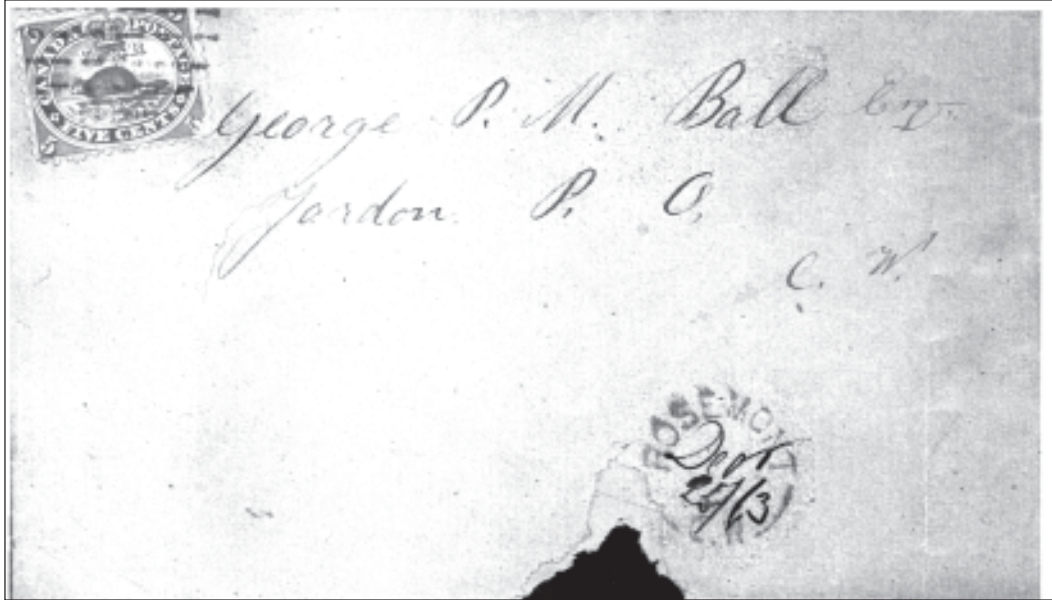 CANADA POSTAGE
FIVE CENTS
George P. M. Ball Esq.
Jordon P. O.
C. W.
ROSEMONT
Sept